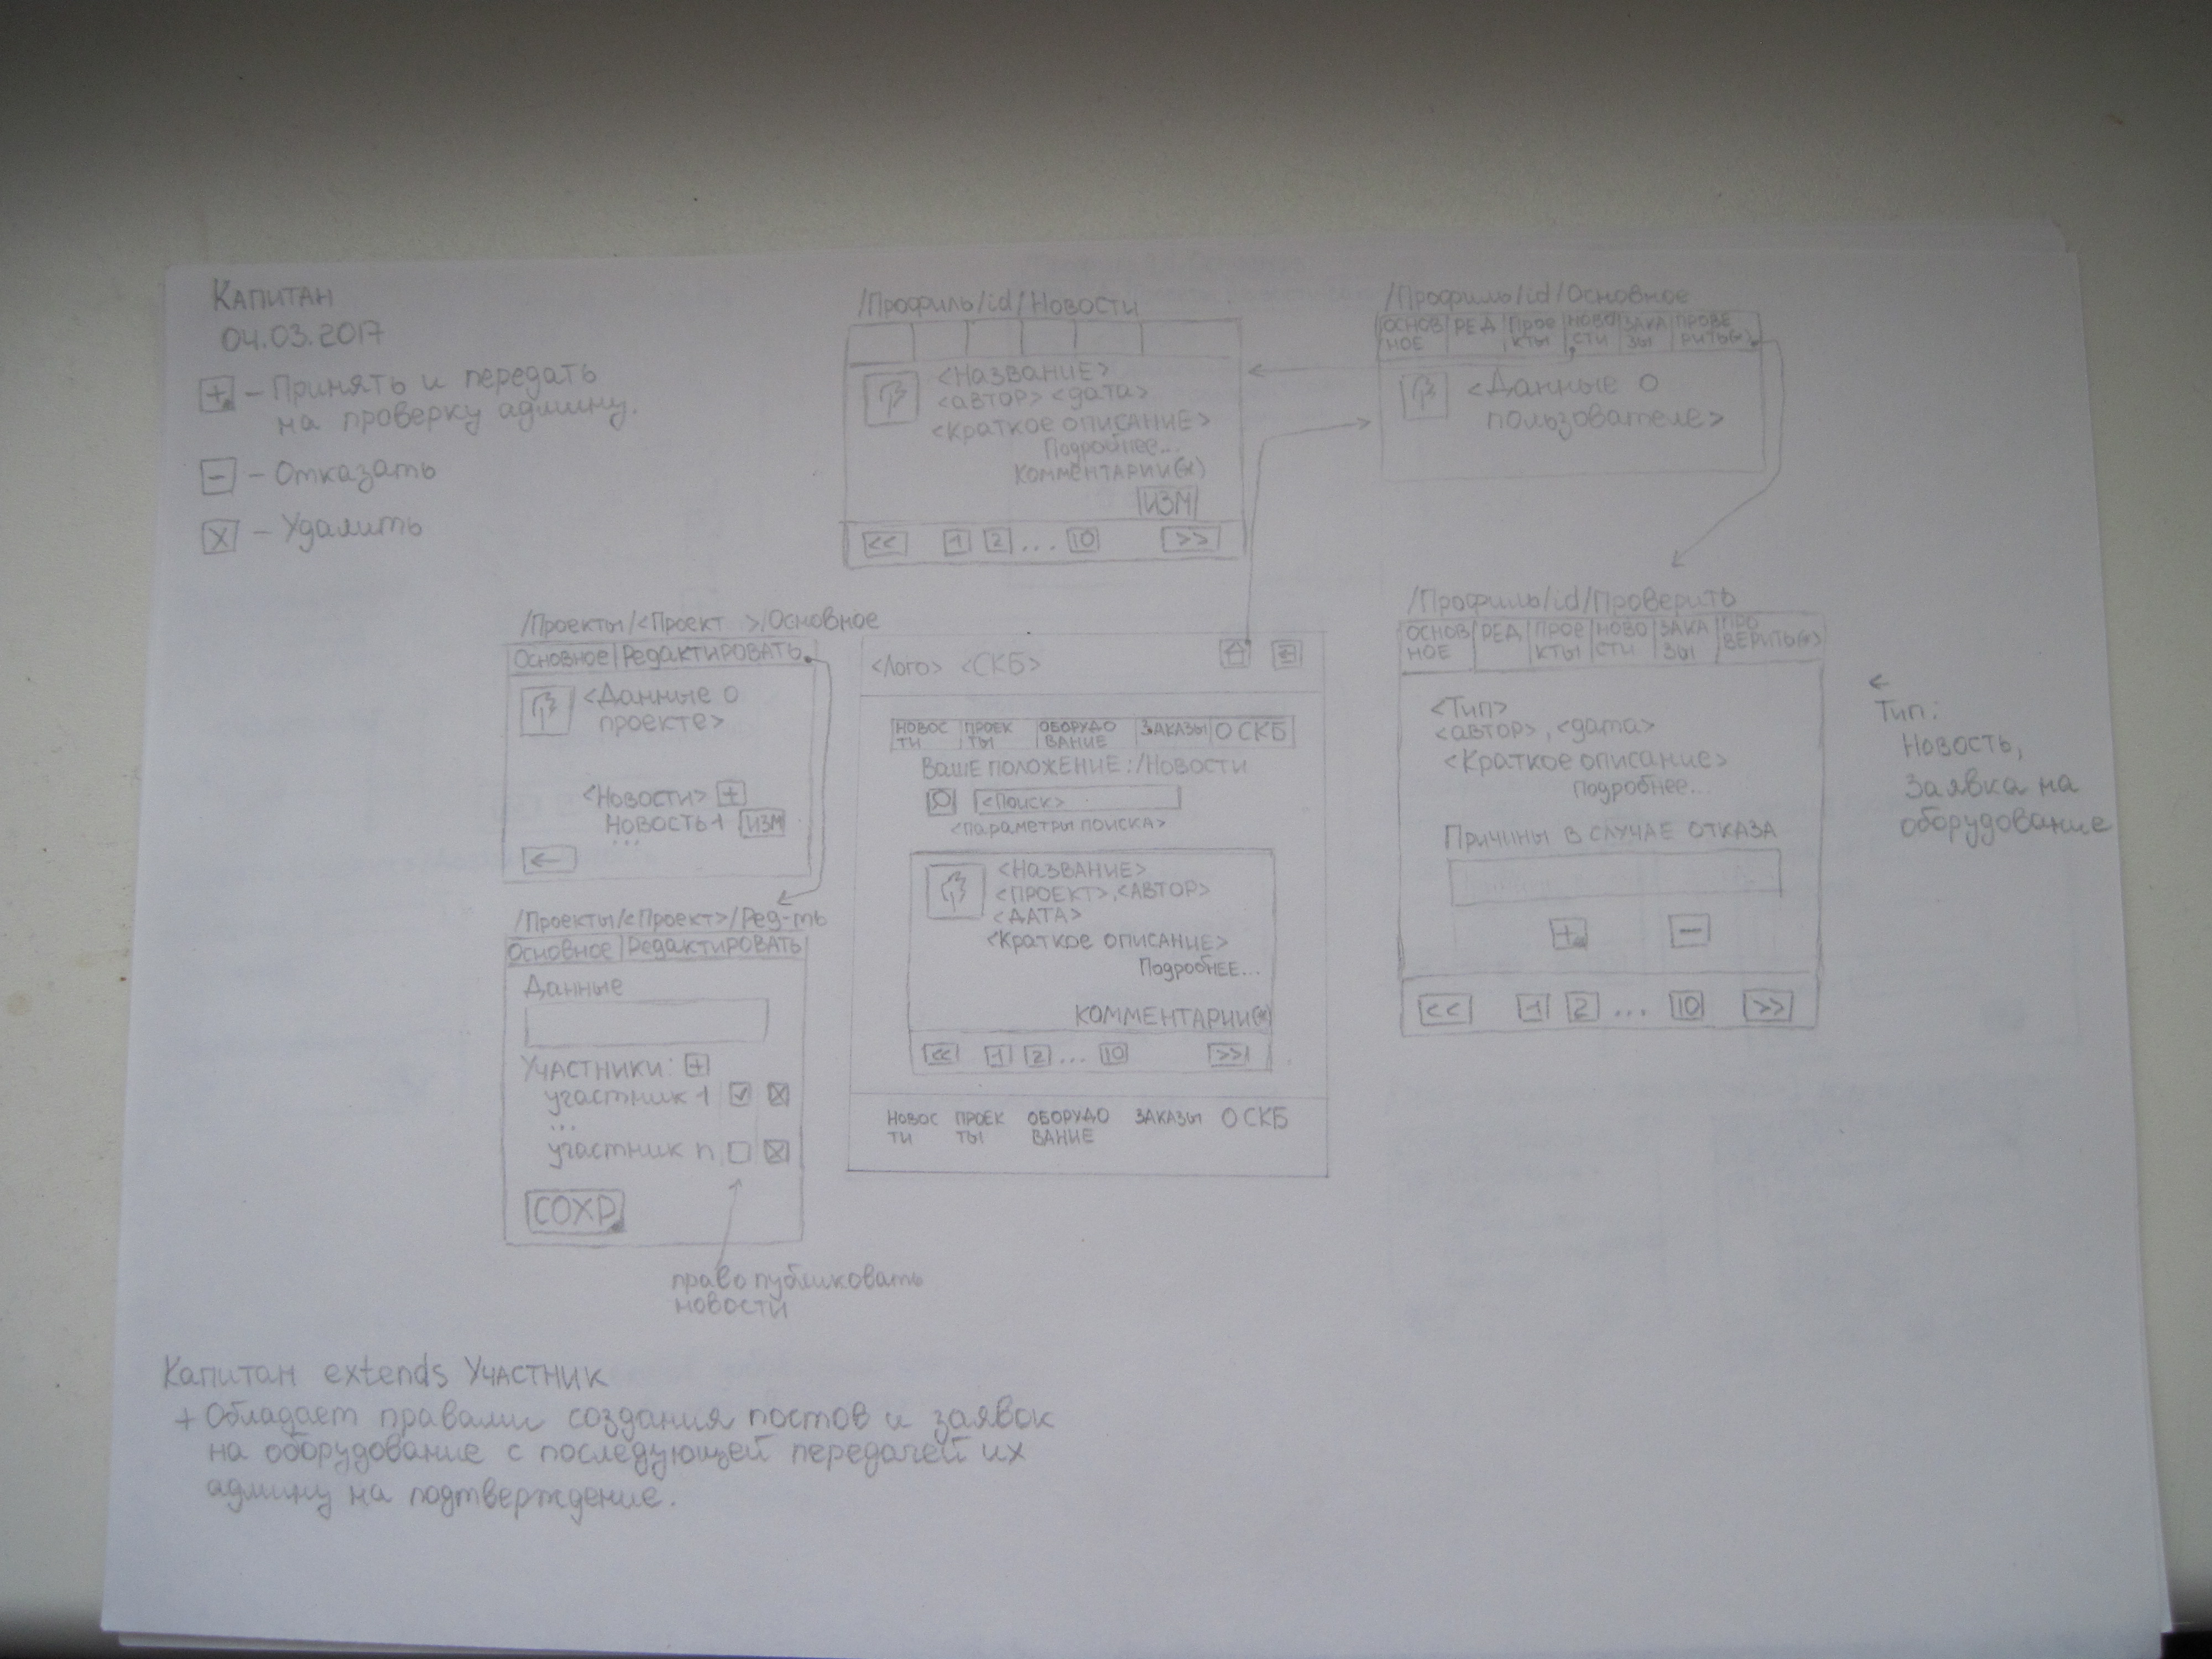 КАПИТАН
04.03.2017
+ – Принять и передать
на проверку админу.
- – Отказать
X – Удалить
/Профиль/id/Новости
<НАЗВАНИЕ>
<автор> <дата>
<Краткое описание>
Подробнее...
Комментарии(x)
ИЗМ
<< 1 2 ... 10 >>
/Профиль/id/Основное
ОСНОВ РЕД Прое НОВО ЗАКА ПРОВЕ
НОЕ кты СТИ ЗЫ РИТЬ(x)
<Данные о
пользователе>
/Проекты/<Проект >/Основное
Основное Редактировать
<Данные о
проекте>
<Новости> +
Новость 1 ИЗМ
...
←
/Проекты/<Проект>/Ред-ть
Основное Редактировать
Данные
Участники: +
участник 1
...
участник n
СОХР
право публиковать
новости
<Лого> <СКБ>
НОВОС ПРОЕК ОБОРУДО ЗАКАЗЫ О СКБ
ТИ ТЫ ВАНИЕ
Ваше положение: /Новости
<Поиск>
<параметры поиска>
<НАЗВАНИЕ>
<ПРОЕКТ>, <АВТОР>
<ДАТА>
<Краткое описание>
Подробнее...
КОММЕНТАРИИ(x)
<< 1 2 ... 10 >>
НОВОС ПРОЕК ОБОРУДО ЗАКАЗЫ О СКБ
ТИ ТЫ ВАНИЕ
/Профиль/id/Проверить
ОСНОВ РЕД ПРОЕ НОВО ЗАКА ПРО
НОЕ КТЫ СТИ ЗЫ ВЕРИТЬ(x)
<Тип>
<автор>, <дата>
<Краткое описание>
Подробнее...
Причины в случае отказа
+ -
<< 1 2 ... 10 >>
←
Тип:
Новость,
Заявка на
оборудование
Капитан extends Участник
+ Обладает правами создания постов и заявок
на оборудование с последующей передачей их
админу на подтверждение.